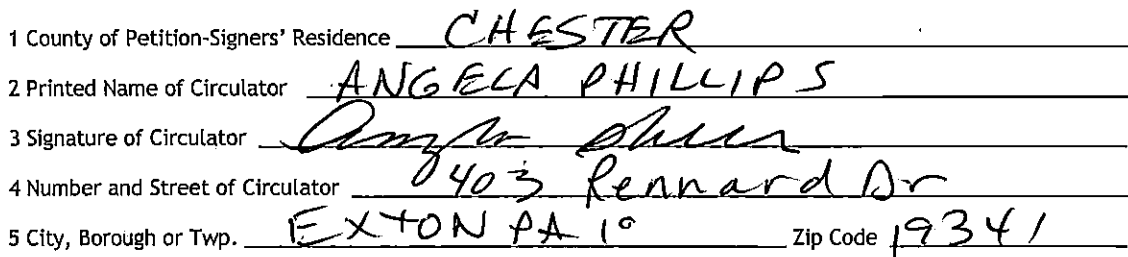 1 County of Petition-Signers' Residence CHESTER
2 Printed Name of Circulator ANGELA PHILLIPS
3 Signature of Circulator
4 Number and Street of Circulator 403 Rennard Dr
5 City, Borough or Twp. EXTON PA Zip Code 19341